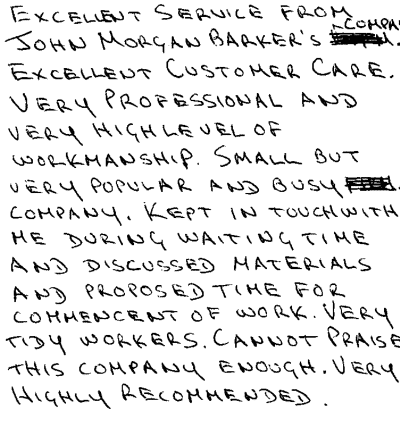 EXCELLENT SERVICE FROM
JOHN MORGAN BARKER'S COMPA .
EXCELLENT CUSTOMER CARE.
VERY PROFESSIONAL AND
VERY HIGH LEVEL OF
WORKMANSHIP. SMALL BUT
VERY POPULAR AND BUSY
COMPANY. KEPT IN TOUCH WITH
ME DURING WAITING TIME
AND DISCUSSED MATERIALS
AND PROPOSED TIME FOR
COMMENCENT OF WORK. VERY
TIDY WORKERS. CANNOT PRAISE
THIS COMPANY ENOUGH. VERY
HIGHLY RECOMMENDED.